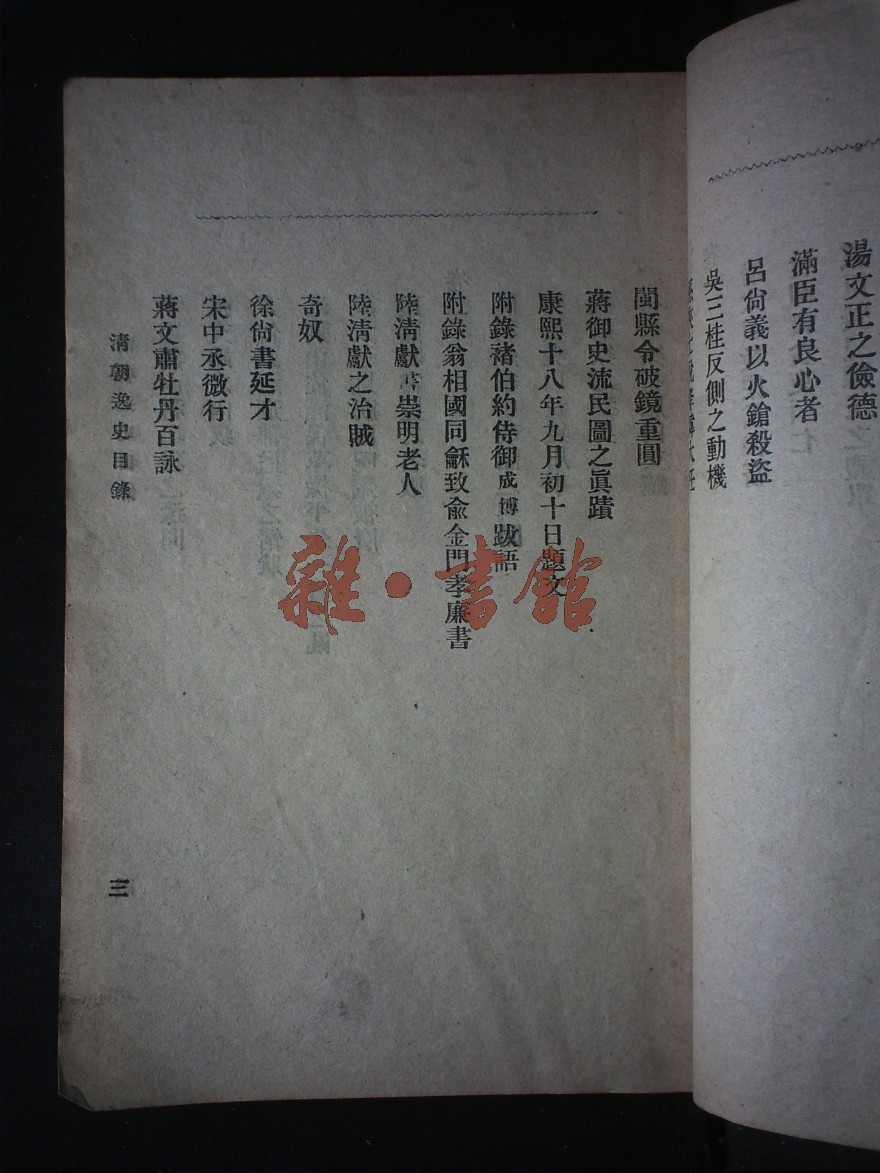 湯文正之儉德
滿臣有良心者
呂尙義以火鎗殺盜
吳三桂反側之動機
閩縣令破鏡重圓
蔣御史流民圖之眞蹟
康熙十八年九月初十日題文
附錄褚伯約侍御成博跋語
附錄翁相國同龢致俞金門孝廉書
陸淸獻書崇明老人
陸淸獻之治賊
奇奴
徐尙書延才
宋中丞微行
蔣文肅牡丹百詠
清朝逸史目錄
三
雜·書館